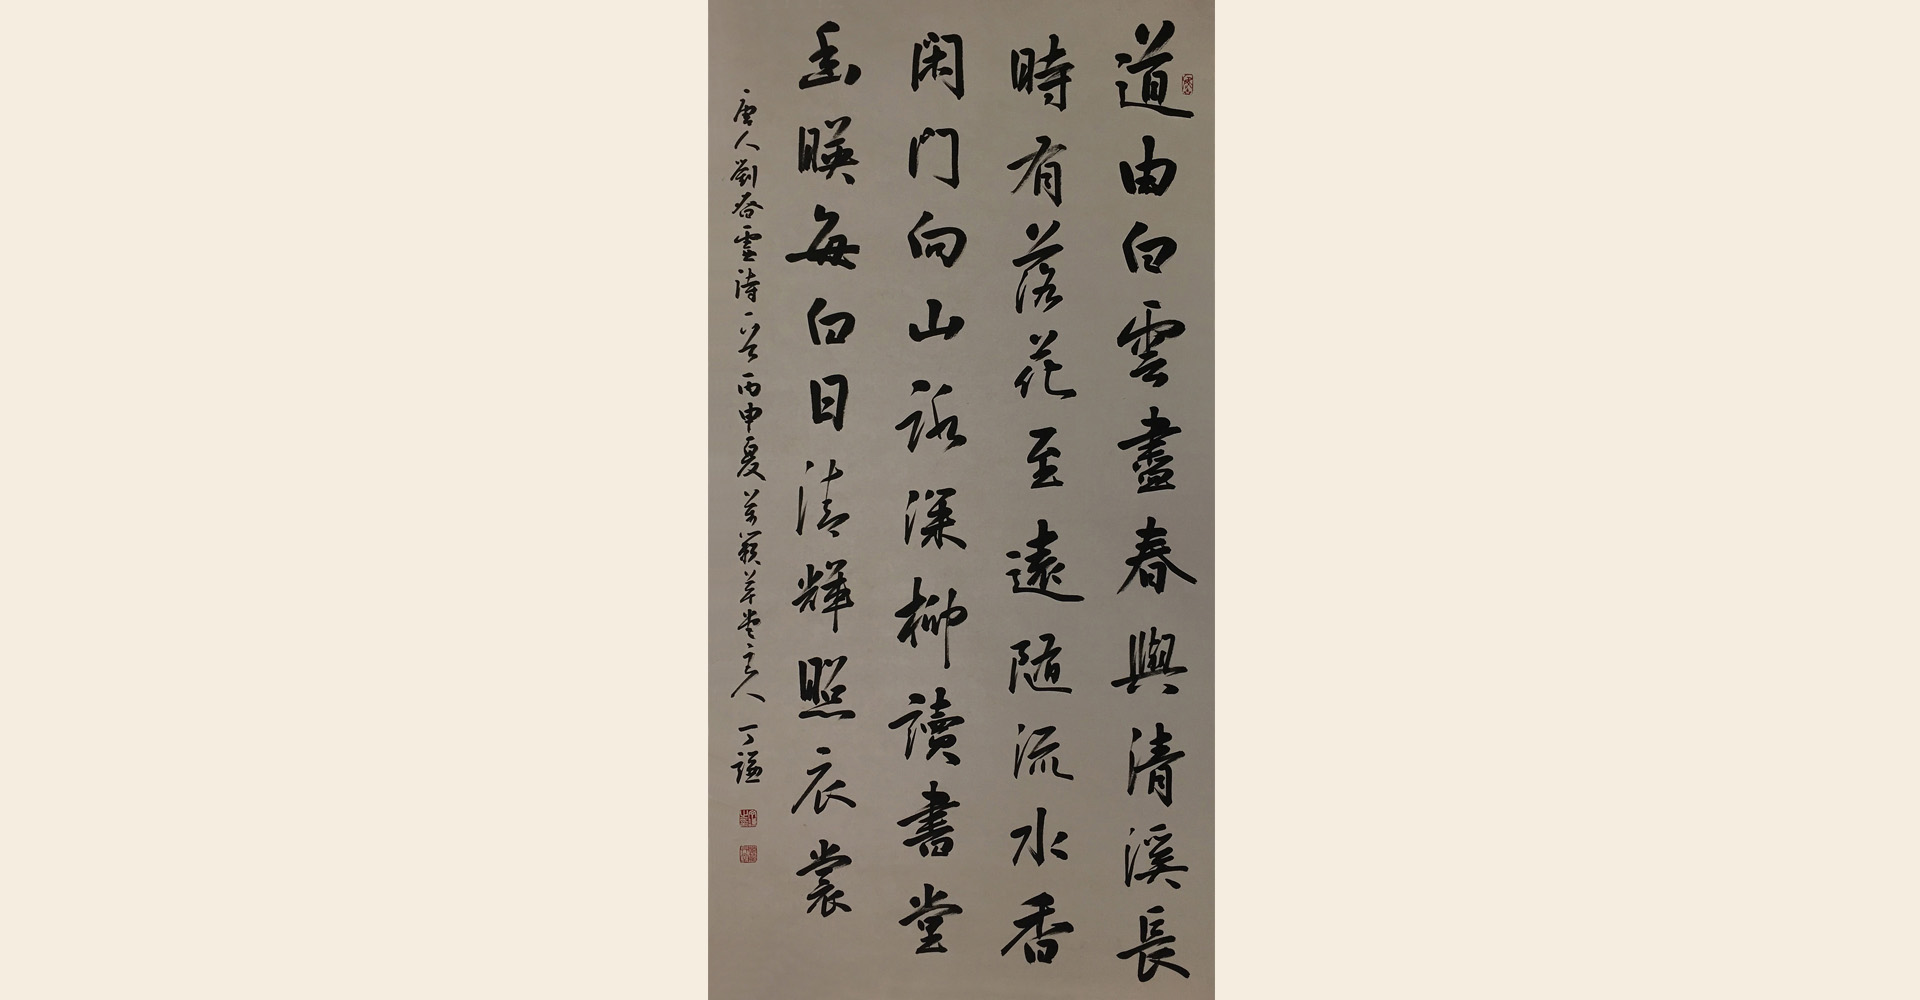 道由白雲盡春與清溪長
時有落花至遠隨流水香
閑門向山路深柳讀書堂
幽暎每白日清輝照衣裳
唐人劉眘虛詩一首丙申夏萬籟草堂主人丁謙